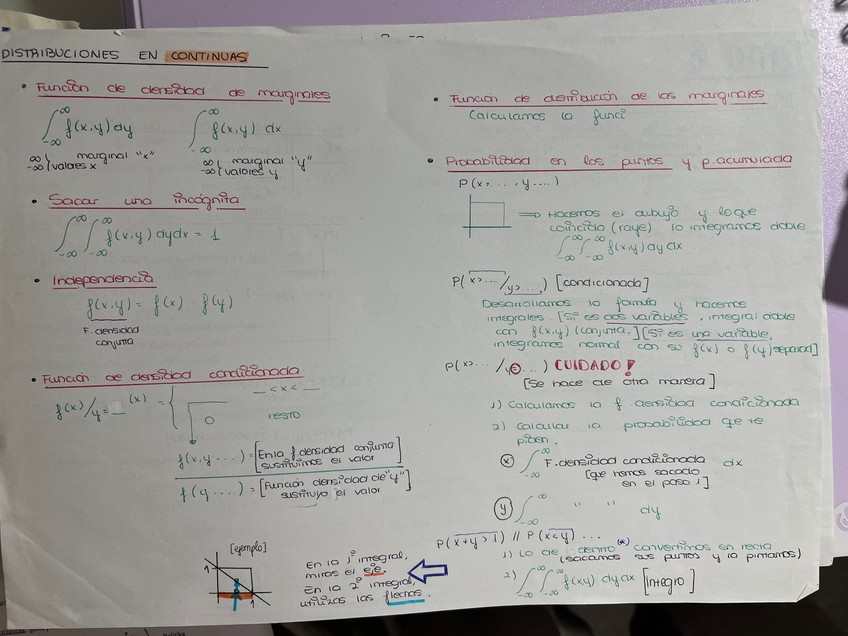 DISTRIBUCIONES EN CONTINUAS
• Función de densidad de marginales
∫_{-∞}^{∞} f(x,y) dy    ∫_{-∞}^{∞} f(x,y) dx
∞ -∞ { marginal "x" valores x    ∞ -∞ { marginal "y" valores y
• Sacar una incógnita
∫_{-∞}^{∞} ∫_{-∞}^{∞} f(x,y) dy dx = 1
• Independencia
f(x,y) = f(x) f(y)
F. densidad
conjunta
• Función de densidad condicionada
f(x)/y=_ (x) = { __ < x < __
0    resto
f(x,y...) = [En la f densidad conjunta
sustituimos el valor]
f(y...) = [Función densidad de "y"
sustituyo el valor]
[ejemplo]
1
1
En la 1ª integral,
miras el eje.
En la 2ª integral,
utilizas las flechas.
• Función de distribución de las marginales
Calculamos la funci
• Probabilidad en los puntos y p. acumulada
P(x>..., y....)
⇒ Hacemos el dibujo y lo que
coincida (raye) lo integramos doble
∫_{-∞}^{∞} ∫_{-∞}^{∞} f(x,y) dy dx
P( x>.../y>... ) [condicionada]
Desarrollamos la formula y hacemos
integrales. [Si es dos variables, integral doble
con f(x,y) (conjunta.] [Si es una variable,
integramos normal con su f(x) o f(y) separad]
P(x>... /y=...) CUIDADO!
[Se hace de otra manera]
1) Calculamos la f densidad condicionada
2) Calcular la probabilidad que te
piden.
(x) ∫_{-∞}^{∞} F. densidad condicionada dx
[que hemos sacado
en el paso 1]
(y) ∫_{-∞}^{∞} " " dy
P(x+y>1) // P(x<y) ...
1) Lo de dentro (*) convertimos en recta
(sacamos sus puntos y la pintamos)
2) ∫_{-∞}^{∞} ∫_{-∞}^{∞} f(x,y) dy dx [integro]